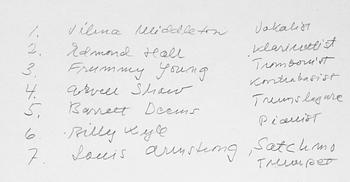 1. Velma Middleton Vokalist
2. Edmond Hall Klarinettist
3. Trummy Young Trombonist
4. Arvell Shaw Kontrabasist
5. Barrett Deems Trumslagare
6. Billy Kyle Pianist
7. Louis Armstrong, Satchmo
Trumpet